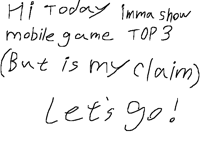 Hi Today Imma show
mobile game TOP 3
(But is my claim)
Let's go!